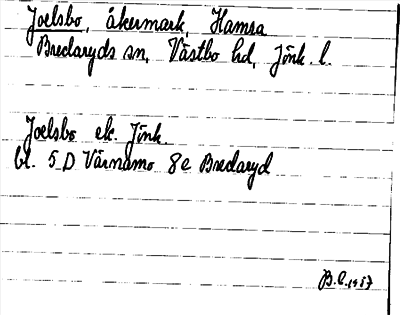 Joelsbo, åkermark, Hamra
Bredaryds sn, Västbo hd, Jönk. l.
Joelsbo ek. Jönk.
bl. 5 D Värnamo 8 e Bredaryd